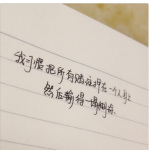 我习惯把所有赌注押在一个人身上
然后输得一塌糊涂